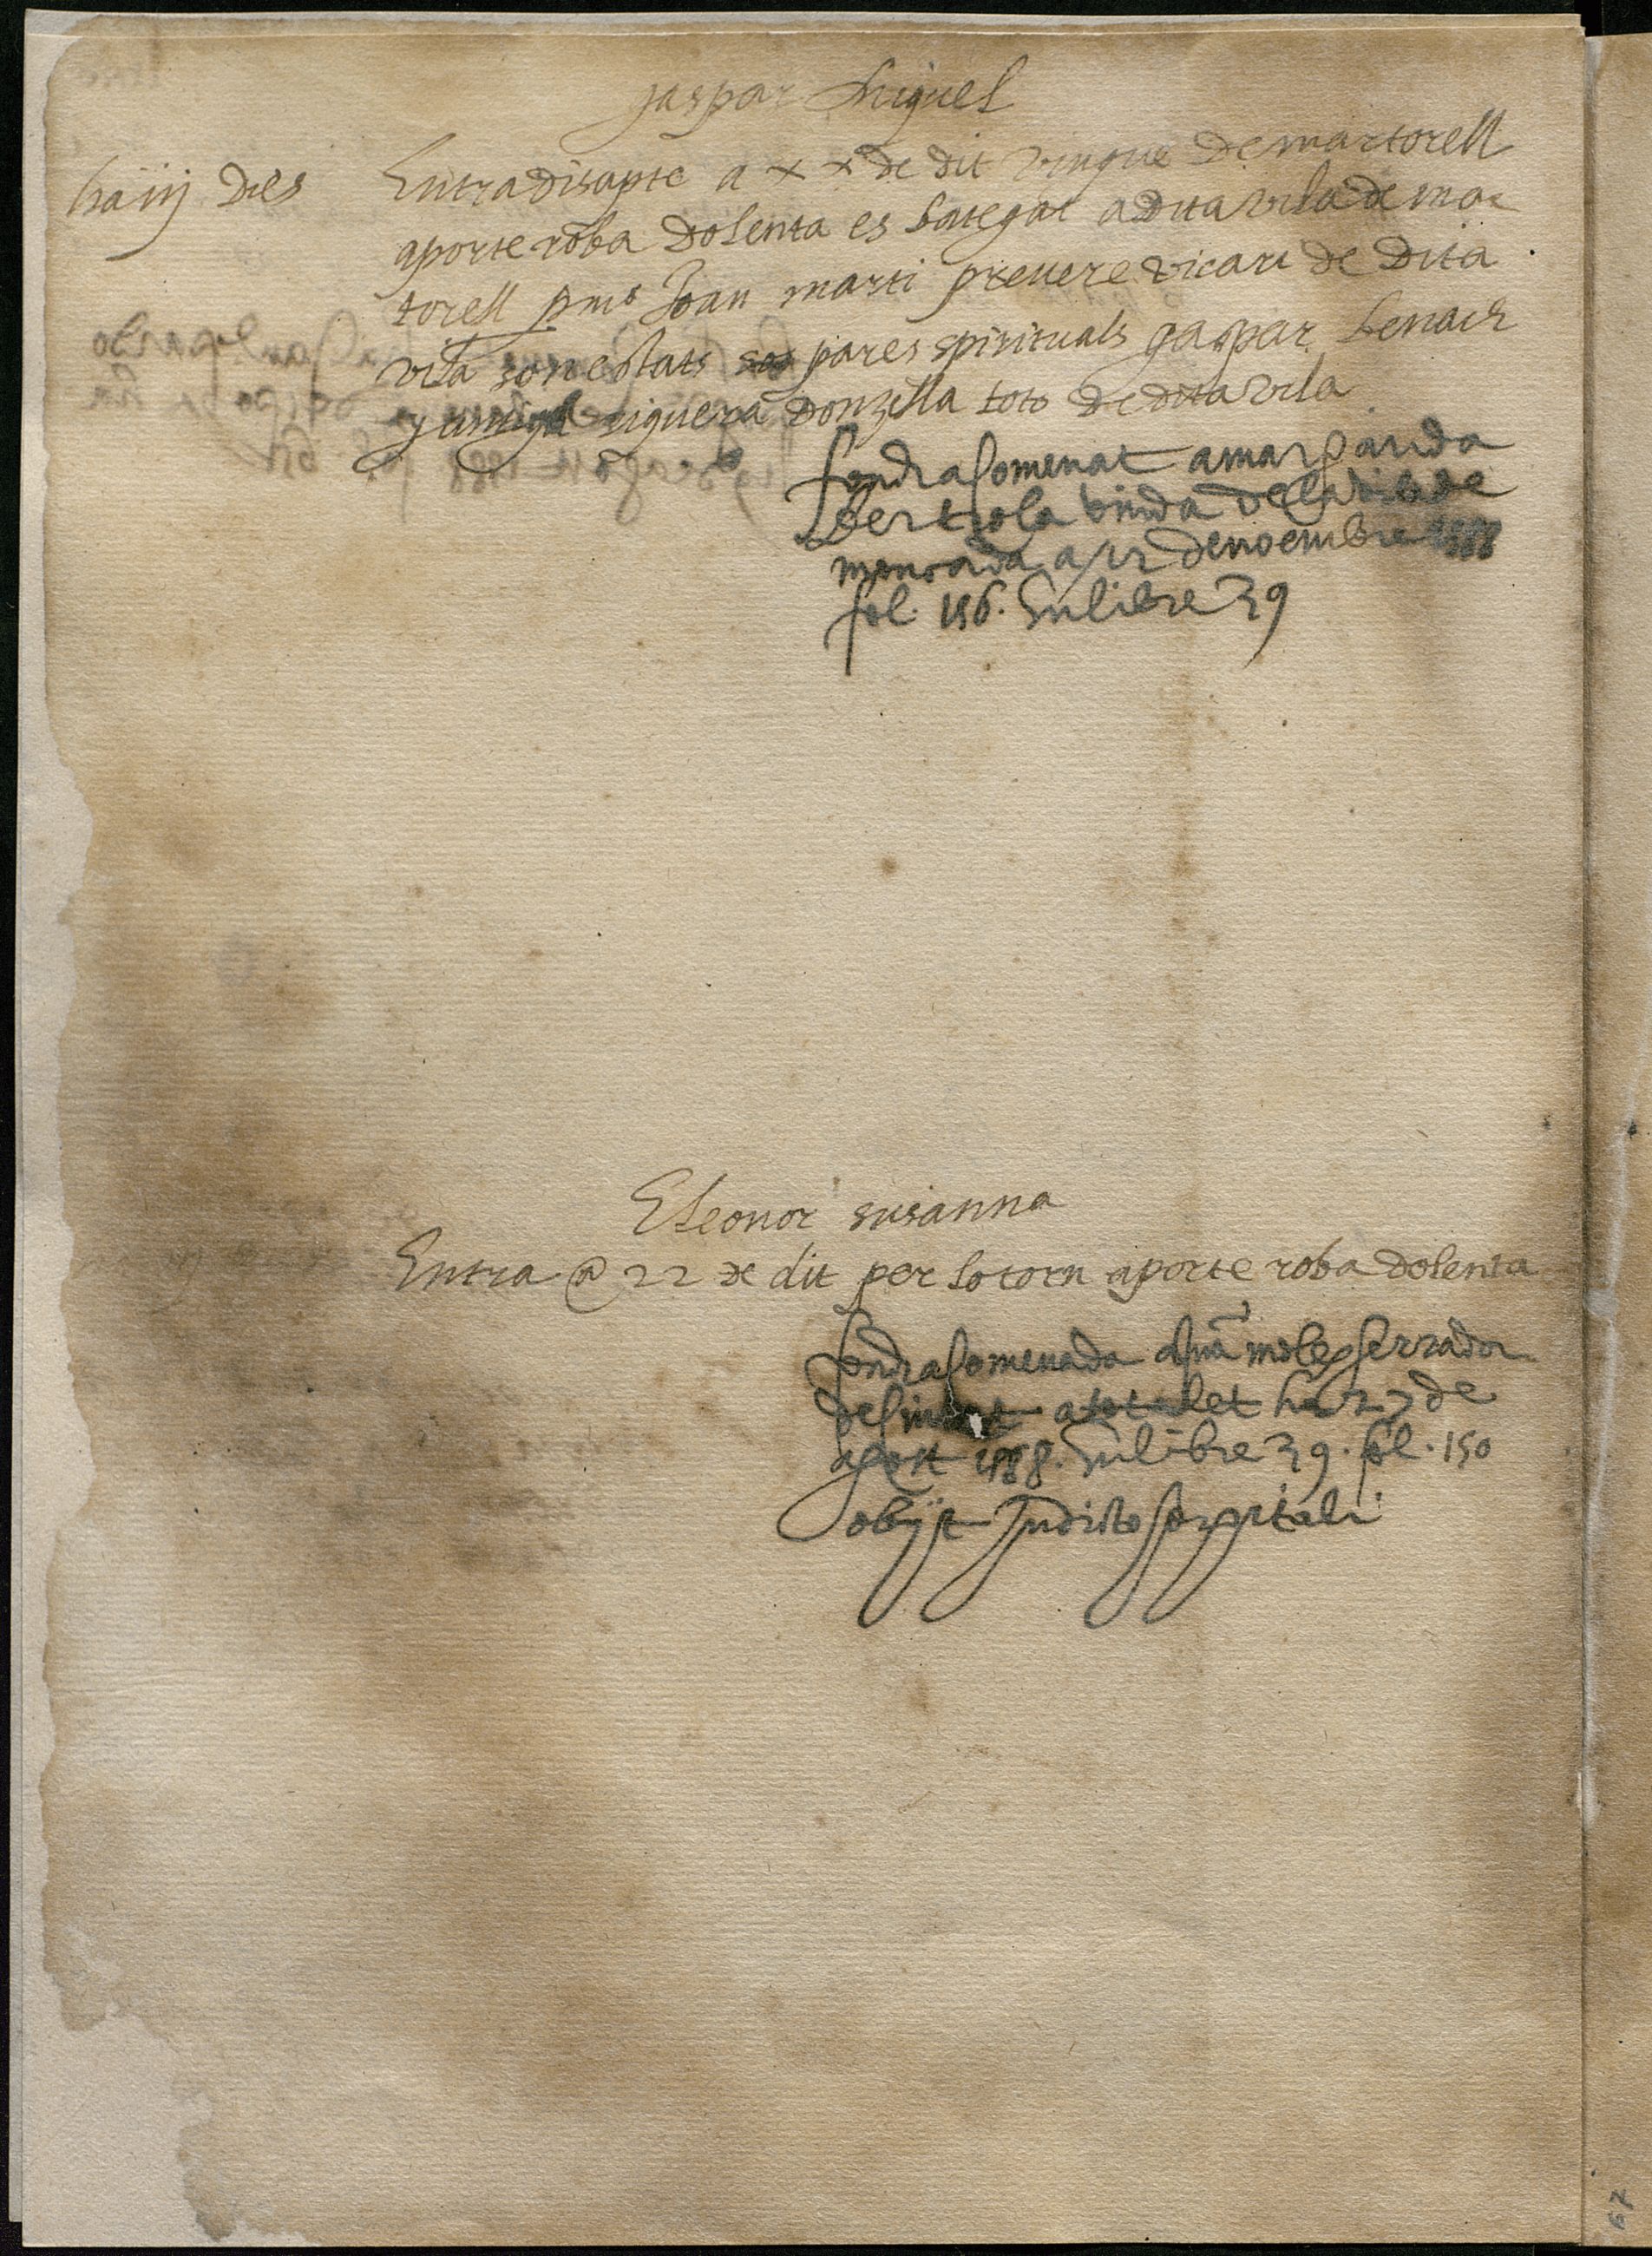 gaspar Miquel
ha iiij dies
Entra disapte a xx de dit vingue de martorell
aporte roba dolenta es bategat a dita vila de mar
torell p mo Joan marti prevere vicari de dita
vila son estats pares spirituals gaspar benach
y siguera donzella tots de dita vila
fon dra comenat a margarida
bertrola viuda de la vila de
a 12 de noembre 1588
fol. 156. En libre 39
Eleonor susanna
Entra @ 22 de dit per lo torn aporte roba dolenta
fon dra comenada serrador
de ha 27 de
agost 1588. En libre 39. fol. 150
obijt In dicto hospitali
67